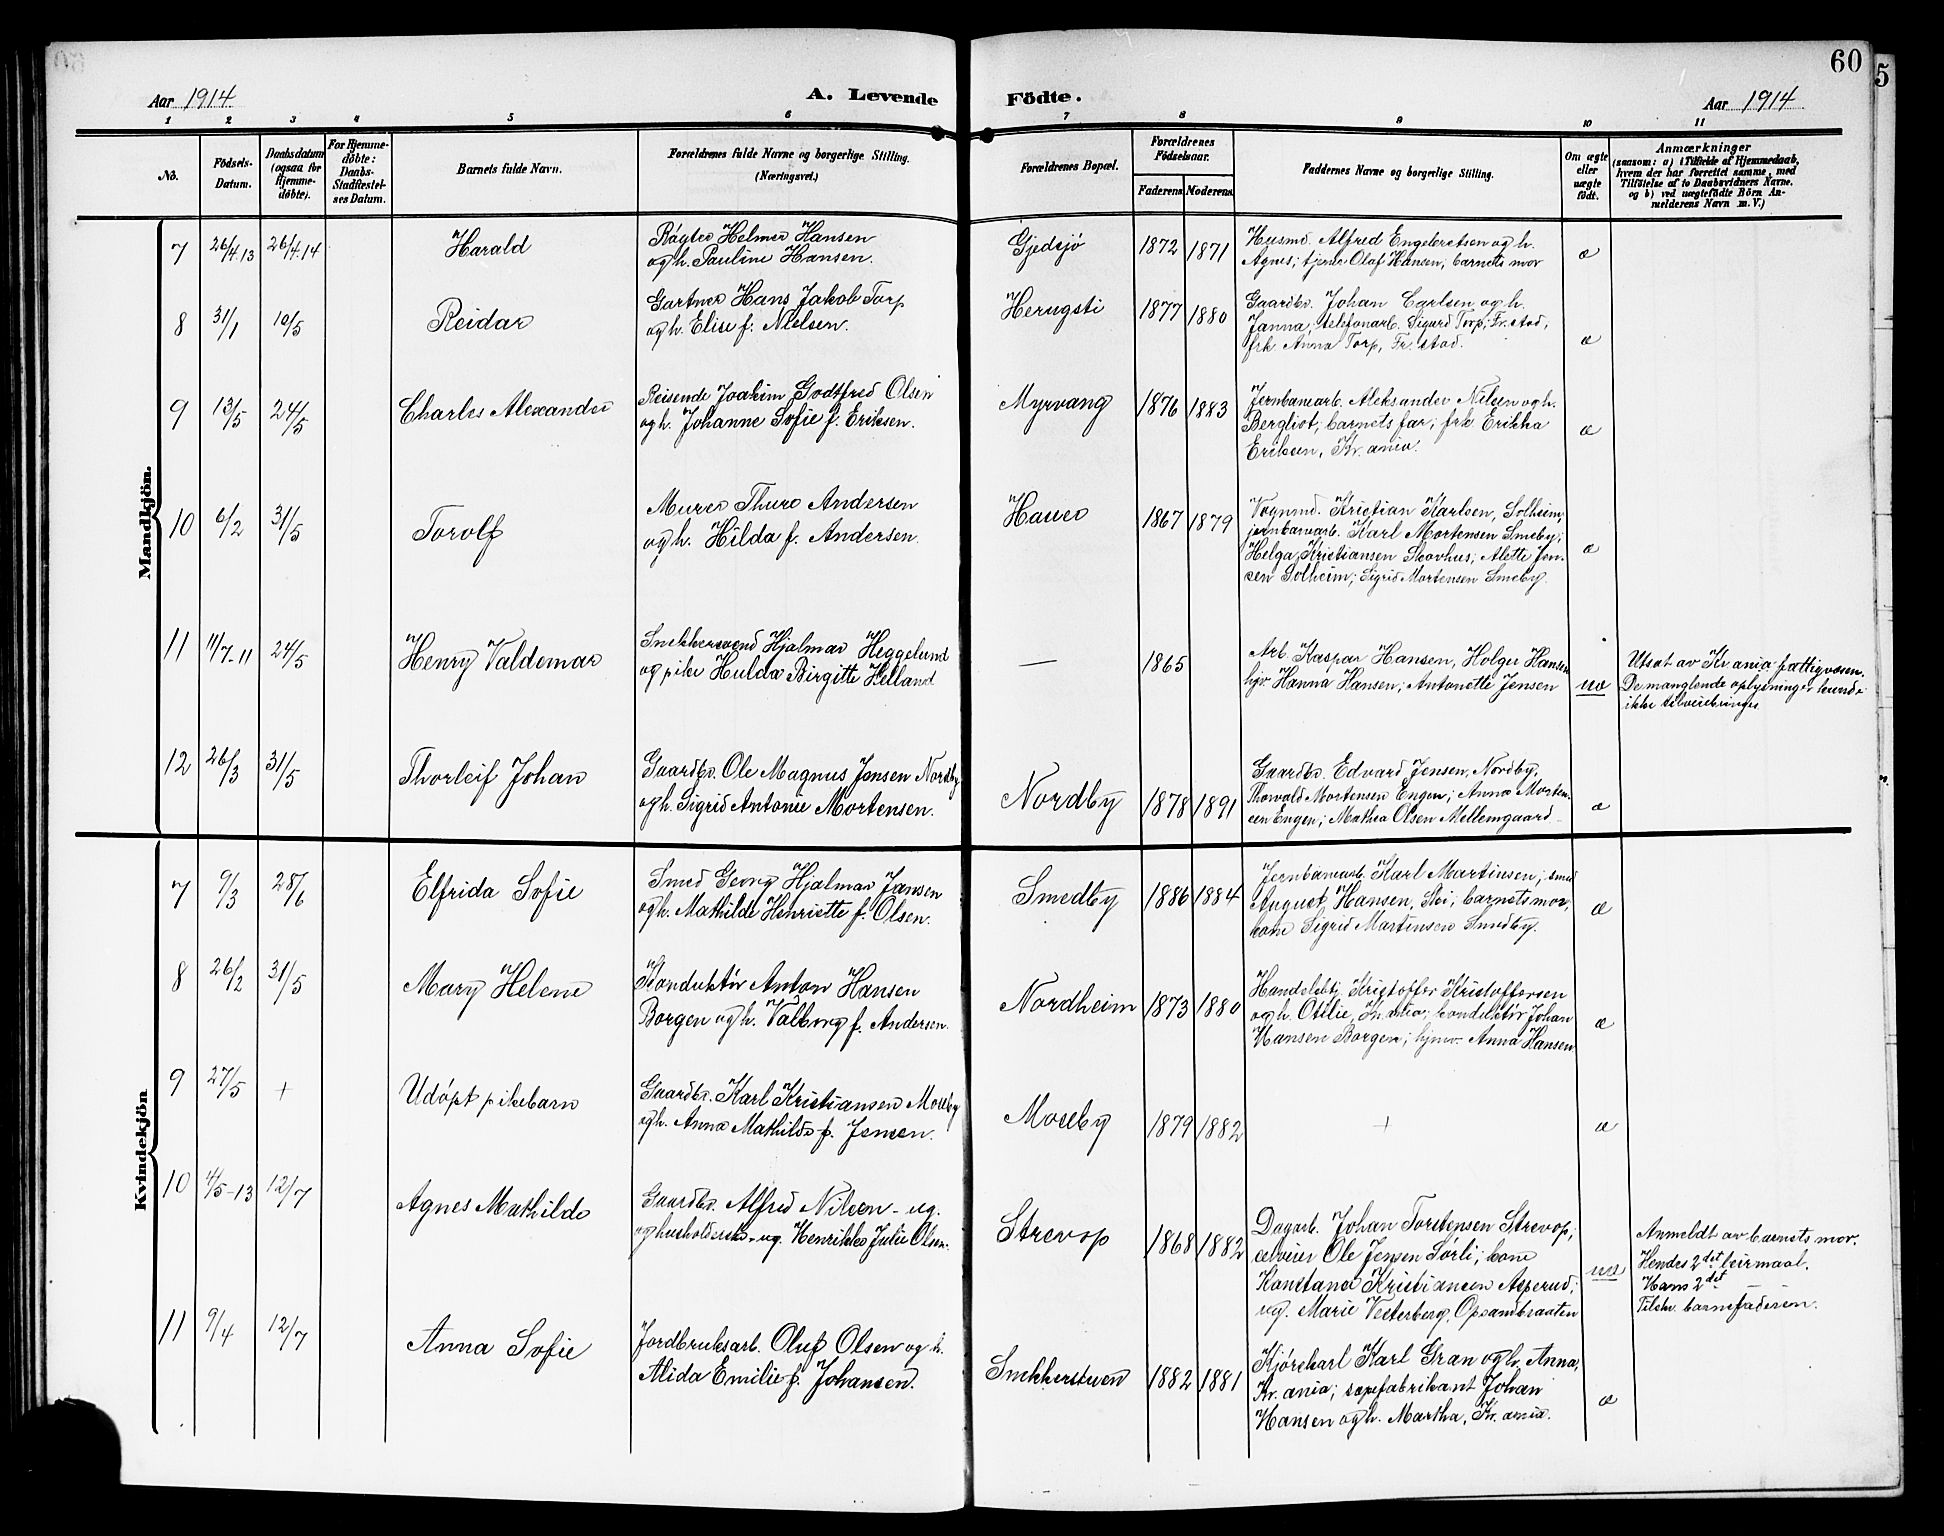 60
5
Aar 1914
A. Levende
Födte.
Aar 1914
1 2 3 4 5 6 7 8 9 10 11
No.
Födsels-
Datum.
Daabsdatum
(ogsaa for
Hjemme-
döbte).
For Hjemme-
döbte:
Daabs-
Stadfæstel-
ses Datum.
Barnets fulde Navn.
Forældrenes fulde Navne og borgerlige Stilling.
(Næringsvei.)
Forældrenes Bopæl.
Forældrenes
Födselsaar.
Faderens
Moderens
Faddernes Navne og borgerlige Stilling.
Om ægte
eller
uægte
födt.
Anmærkninger
(saasom: a) i Tilfælde af Hjemmedaab,
hvem der har forrettet samme, med
Tilföielse af to Daabsvidners Navne.
og b) ved uægtefödte Börn An-
melderens Navn m. V.)
Mandkjön.
7 26/4.13 26/4.14
Harald
Røgter Helmer Hansen
og h. Pauline Hansen.
Gjedsjø
1872 1871
Husmd. Alfred Engebretsen og h.
Agnes; tjener Olaf Hansen; barnets mor
æ
8 31/1 10/5
Reidar
Gartner Hans Jakob Torp
og h. Elise f. Nielsen.
Herugsti
1877 1880
Gaardbr. Johan Carlsen og h.
Janna; telefonarb. Sigurd Torp; Fr.stad;
frk. Anna Torp, Fr.stad.
æ
9 13/5 24/5
Charles Alexander
Reisende Joakim Godtfred Olsen
og h. Johanne Sofie f. Eriksen.
Myrvang
1876 1883
Jernbanearb. Aleksander Nilsen og h.
Bergliot; barnets far; frk. Erikka
Eriksen, Kr.ania.
æ
10 6/2 31/5
Torolf
Murer Thure Andersen
og h. Hilda f. Andersen.
Hauer
1867 1879
Vognmd. Kristian Karlsen, Solheim;
jernbanearb. Karl Mortensen Smeby;
Helga Kristiansen Skovhus; Alette Jen-
sen Solheim; Sigrid Mortensen Smeby.
æ
11 11/7-11 24/5
Henry Valdemar
Snekkersvend Hjalmar Heggelund
og pike Hulda Birgitte Helland
—
1865
Arb. Kaspar Hansen, Holger Hansen
hjv Hanna Hansen; Antonette Jensen
uæ
Utsat av Kr.ania fattigvæsen.
De manglende oplysninger kunde
ikke tilveiebringes.
12 26/3 31/5
Thorleif Johan
Gaardbr. Ole Magnus Jensen Nordby
og h. Sigrid Antonie Mortensen.
Nordby
1878 1891
Gaardbr. Edvard Jensen, Nordby,
Thorvald Mortensen Engen; Anna Morten-
sen Engen; Mathea Olsen Mellemgaard
æ
Kvindekjön
7 9/3 28/6
Elfrida Sofie
Smed Georg Hjalmar Jansen
og h. Mathilde Henriette f. Olsen.
Smedby
1886 1884
Jernbanearb. Karl Martinsen; smed
August Hansen, Ski; barnets mor,
kone Sigrid Martinsen Smedby.
æ
8 26/2 31/5
Mary Helene
Konduktør Anton Hansen
Borgen og h. Valborg f. Andersen.
Nordheim
1873 1880
Handelsbtj. Kristoffer Kristoffersen
og h. Otilie, Kr.ania; konduktør Johan
Hansen Borgen; hjmv. Anna Hansen
æ
9 27/5 +
Udøpt pikebarn
Gaardbr. Karl Kristiansen Moseby
og h. Anna Mathilde f. Jensen.
Moseby
1879 1882
+
æ
10 4/5-13 12/7
Agnes Mathilde
Gaardbr. Alfred Nilsen - ug.
og husholderske ug. Henrikke Julie Olsen.
Strevop
1868 1882
Dagarb. Johan Torstensen Strevop;
selveier Ole Jensen Sørli; kone
Konstanse Kristiansen Asperud;
ug. Marie Vesterberg, Opsambraaten
uæ
Anmeldt av barnets mor.
Hendes 2det leirmaal.
Hans 2det
Tilskr. barnefaderen.
11 9/4 12/7
Anna Sofie
Jordbruksarb. Oluf Olsen og h.
Alida Emilie f. Johansen.
Snekkerstuen
1882 1881
Kjørekarl Karl Gran og h. Anna,
Kr.ania; sæpefabrikant Johan
Hansen og h. Martha, Kr.ania.
æ